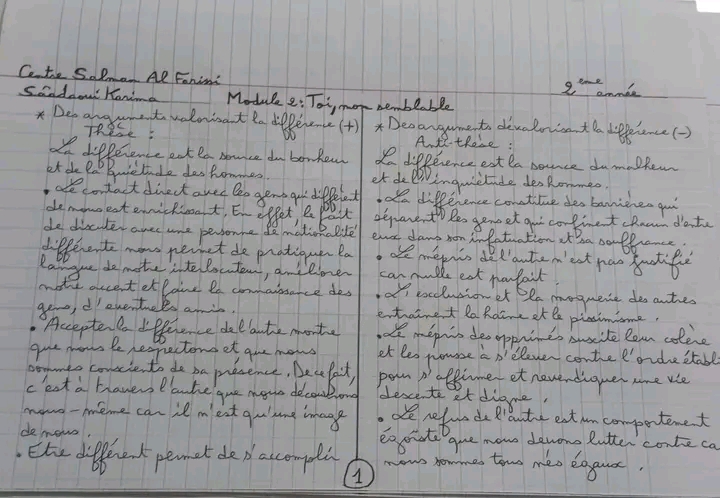 Centre Salman Al Farissi
2ème année
Sâadaoui Karima
Module 2: Toi, mon semblable
* Des arguments valorisant la différence (+)
Thèse :
La différence est la source du bonheur
et de la quiétude des hommes.
• Le contact direct avec les gens qui diffèrent
de nous est enrichissant. En effet, le fait
de discuter avec une personne de nationalité
différente nous permet de pratiquer la
langue de notre interlocuteur, améliorer
notre accent et faire la connaissance des
gens, d'éventuels amis.
• Accepter la différence de l'autre montre
que nous le respectons et que nous
sommes conscients de sa présence. De ce fait,
c'est à travers l'autre que nous découvrons
nous-même car il n'est qu'une image
de nous.
• Etre différent permet de s'accomplir
* Des arguments dévalorisant la différence (-)
Anti-thèse :
La différence est la source du malheur
et de l'inquiétude des hommes.
• La différence constitue des barrières qui
séparent les gens et qui confinent chacun d'entre
eux dans son infatuation et sa souffrance.
• Le mépris de l'autre n'est pas justifié
car nulle est parfait.
• L'exclusion et la moquerie des autres
entraînent la haîne et le pissimisme.
• Le mépris des opprimés suscite leur colère
et les pousse à s'élever contre l'ordre établi
pour s'affirmer et revendiquer une vie
descente et digne.
• Le refus de l'autre est un comportement
égoïste que nous devons lutter contre ca
nous sommes tous nés égaux.
1